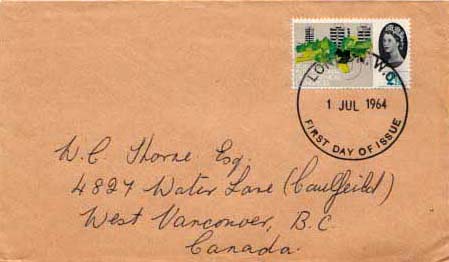 LONDON. W.C.
1 JUL 1964
FIRST DAY OF ISSUE
W. C. Thorne Esq.
4827 Water Lane (Caulfeild)
West Vancouver, B.C.
Canada.